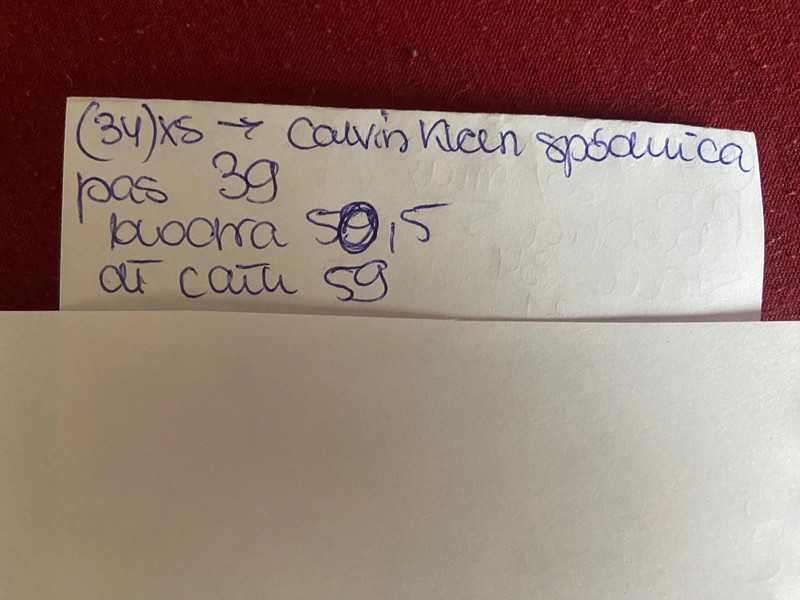 (34)xs → Calvin Klein spódnica
pas 39
biodra 50,5
dł. całk. 59